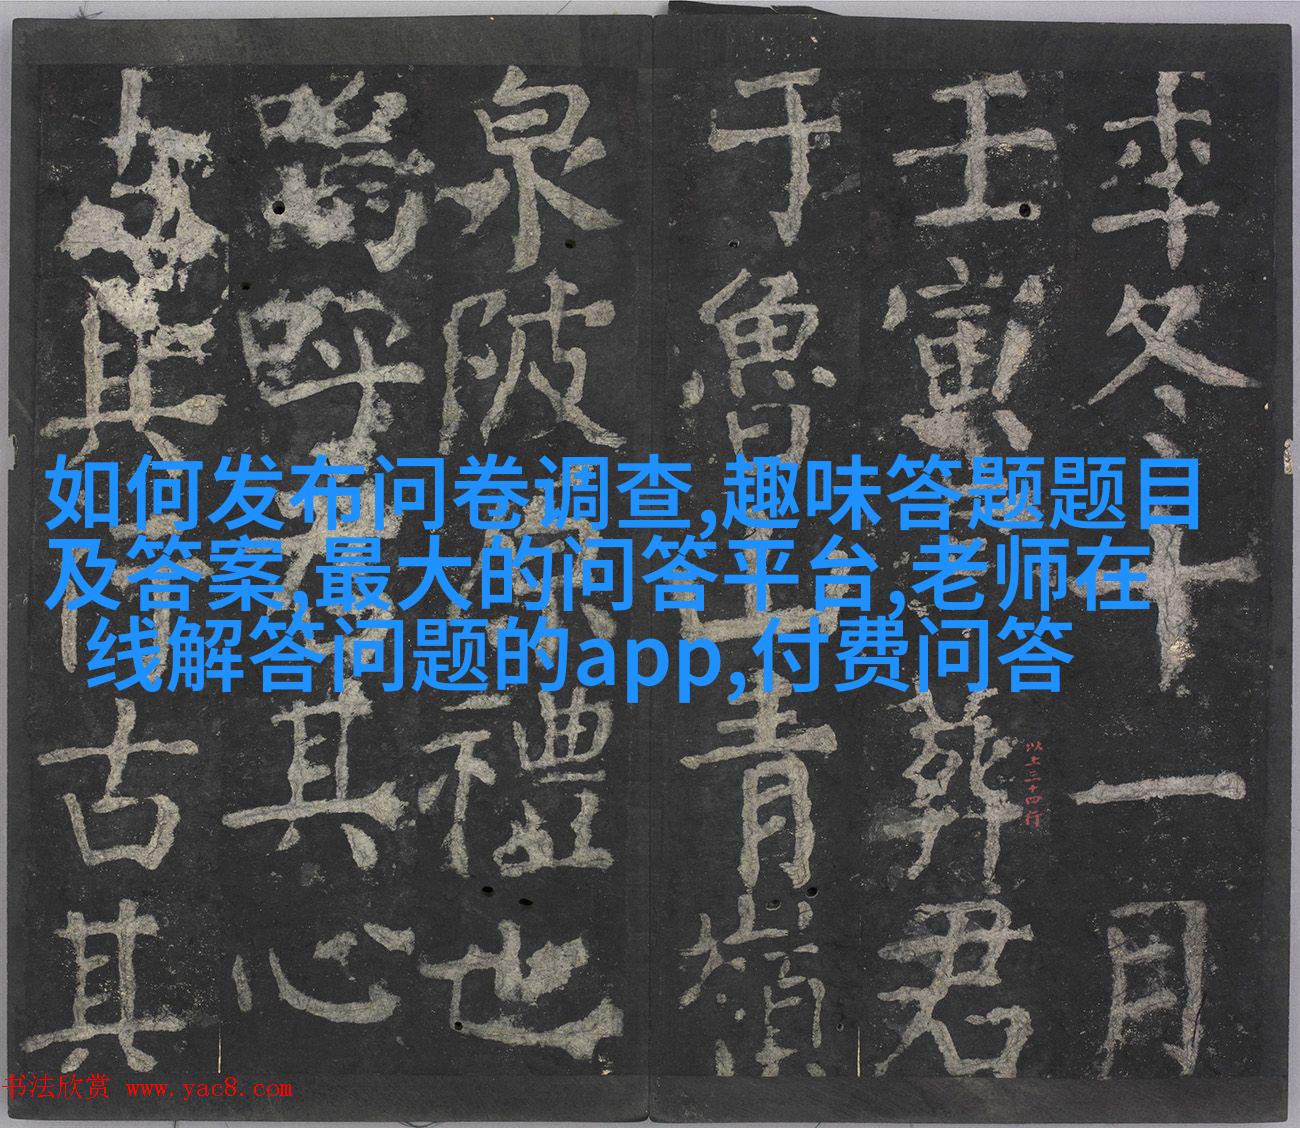 如何发布问卷调查,趣味答题题目
及答案,最大的问答平台,老师在
线解答问题的app,付费问答
年冬十一月
壬寅葬君
于魯山青嶺
泉陂原禮也
嗚呼君其心
古其行古其
以上三十四行
书法欣赏 www.yac8.com